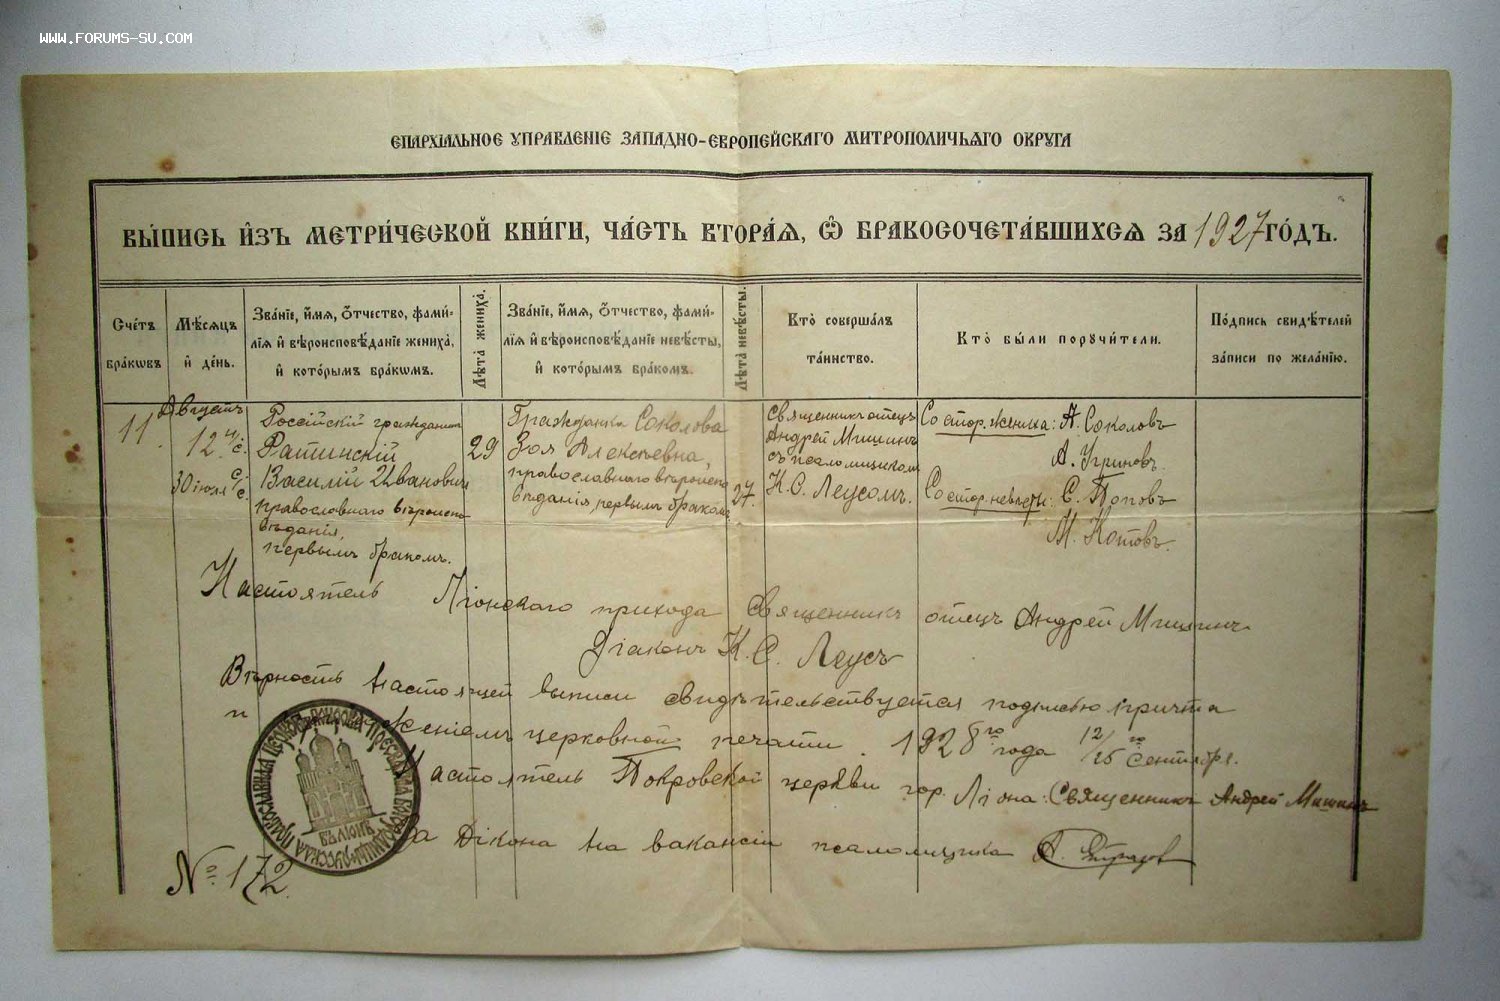 WWW.FORUMS-SU.COM
ЕПАРХІАЛЬНОЕ УПРАВЛЕНІЕ ЗАПАДНО-ЕВРОПЕЙСКАГО МИТРОПОЛИЧЬЯГО ОКРУГА
ВЫ́ПИСЬ И҆ЗЪ МЕТРИ́ЧЕСКОЙ КНИ́ГИ, ЧА́СТЬ ВТОРА́Я, Ѽ БРАКОСОЧЕТА́ВШИХСЯ ЗА 1927 ГО́ДЪ.
Сче́тъ
бра́кѡвъ
Мѣ́сяцъ
и҆ де́нь.
Зва́нїе, и҆́мя, ѻ҆́тчество, фами́-
лїя и҆ вѣроисповѣ́данїе жениха̀,
и҆ кото́рымъ бра́комъ.
Лѣ́та̀ жениха̀.
Зва́нїе, и҆́мя, ѻ҆́тчество, фами́-
лїя и҆ вѣроисповѣ́данїе невѣ́сты,
и҆ кото́рымъ бра́комъ.
Лѣ́та̀ невѣ́сты.
Кто̀ соверша́лъ
та́инство.
Кто̀ бы́ли порꙋчи́тели.
По́дпись свидѣ́телей
за́писи по жела́нїю.
11.
Августъ
12 н/с.
30 іюля с/с.
Россійскій гражданинъ
Ратинскій
Василій Ивановичъ
православнаго вѣроиспо-
вѣданія,
первымъ бракомъ.
29
Гражданка Соколова
Зоя Алексѣевна,
православнаго вѣроиспо-
вѣданія, первымъ бракомъ
27.
Священникъ отецъ
Андрей Мишинъ
съ псаломщикомъ
К. С. Леусомъ.
Со стор. жениха: А. Соколовъ
А. Угриновъ.
Со стор. невѣсты: С. Поповъ
М. Котовъ.
Настоятель Ліонскаго прихода Священникъ отецъ Андрей Мишинъ
Діаконъ К. С. Леусъ
Вѣрность настоящей выписи свидѣтельствуется подписью причта
и приложеніемъ церковной печати. 1928го года 12/25го Сентября.
Настоятель Покровской церкви гор. Ліона: Священникъ Андрей Мишинъ
Діакона на вакансіи псаломщика А.
РУССКАЯ ПРАВОСЛАВНАЯ ЦЕРКОВЬ ПОКРОВА ПРЕСВЯТЫЯ БОГОРОДИЦЫ
ВЪ ЛІОНѢ
№ 172.